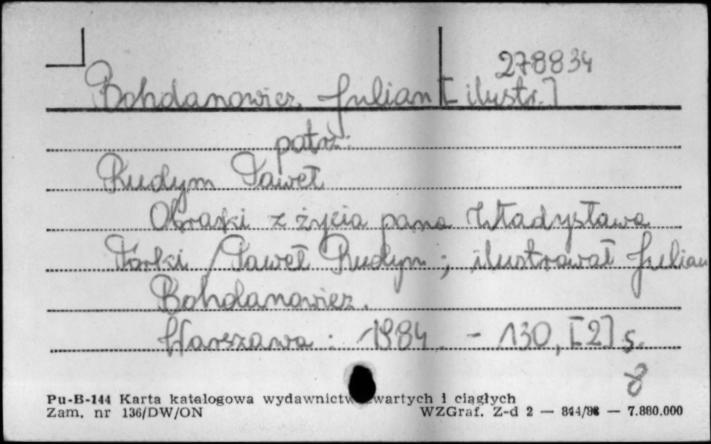 278834
Bohdanowicz Julian [ilustr.]
patrz:
Rudym Paweł
Obrazki z życia pana Władysława
Forki / Paweł Rudym ; ilustrował Julian
Bohdanowicz.
Warszawa : 1984. - 130, [2] s.
8
Pu-B-144 Karta katalogowa wydawnictw zwartych i ciągłych
Zam. nr 136/DW/ON WZGraf. Z-d 2 — 7.880.000